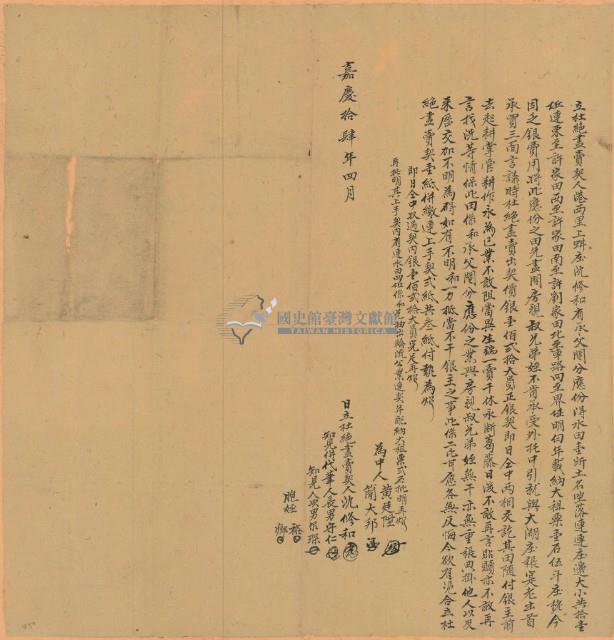 立杜絕盡賣契人港西里上蚶庄沈修和有承父鬮分應份得水田壹所土名坐落連連庄邊大小共拾壹
坵連東至許家田西至許家田南至許劉家田北至車路四至界址明白年載納大租粟壹石伍斗庄栳今
因乏銀費用將此應份之田先盡問房親叔兄弟姪不肯承受外托中引就與大湖庄張寔老出首
承買三面言議時杜絕盡賣出契價銀壹佰貳拾大員正銀契即日仝中兩相交訖其田隨付銀主前
去起耕掌管耕作永為己業不敢阻當異生端一賣千休永斷葛藤日後不敢再言取贖亦不敢再
言找洗等情保此田係和承父鬮分應份之業與房親叔兄弟姪無干亦無重張典掛他人以及
來歷交加不明為碍如有不明和一力抵當不干銀主之事此係二比甘愿各無反悔今欲有憑合立杜
絕盡賣契壹紙併繳連上手契貳紙共叁紙付執為炤
即日仝中收過契內銀壹佰貳拾大員完足再炤
再批明其上手契內有連水田四坵係和兄抽出輪流公業連契年配納大租粟貳石批明再炤
為中人 黃廷陞
簡大邦
日立杜絕盡賣契人沈修和
知見併代筆人長男守仁
知見人次男
胞姪
嘉慶拾肆年四月
國史館臺灣文獻館
TAIWAN HISTORICA